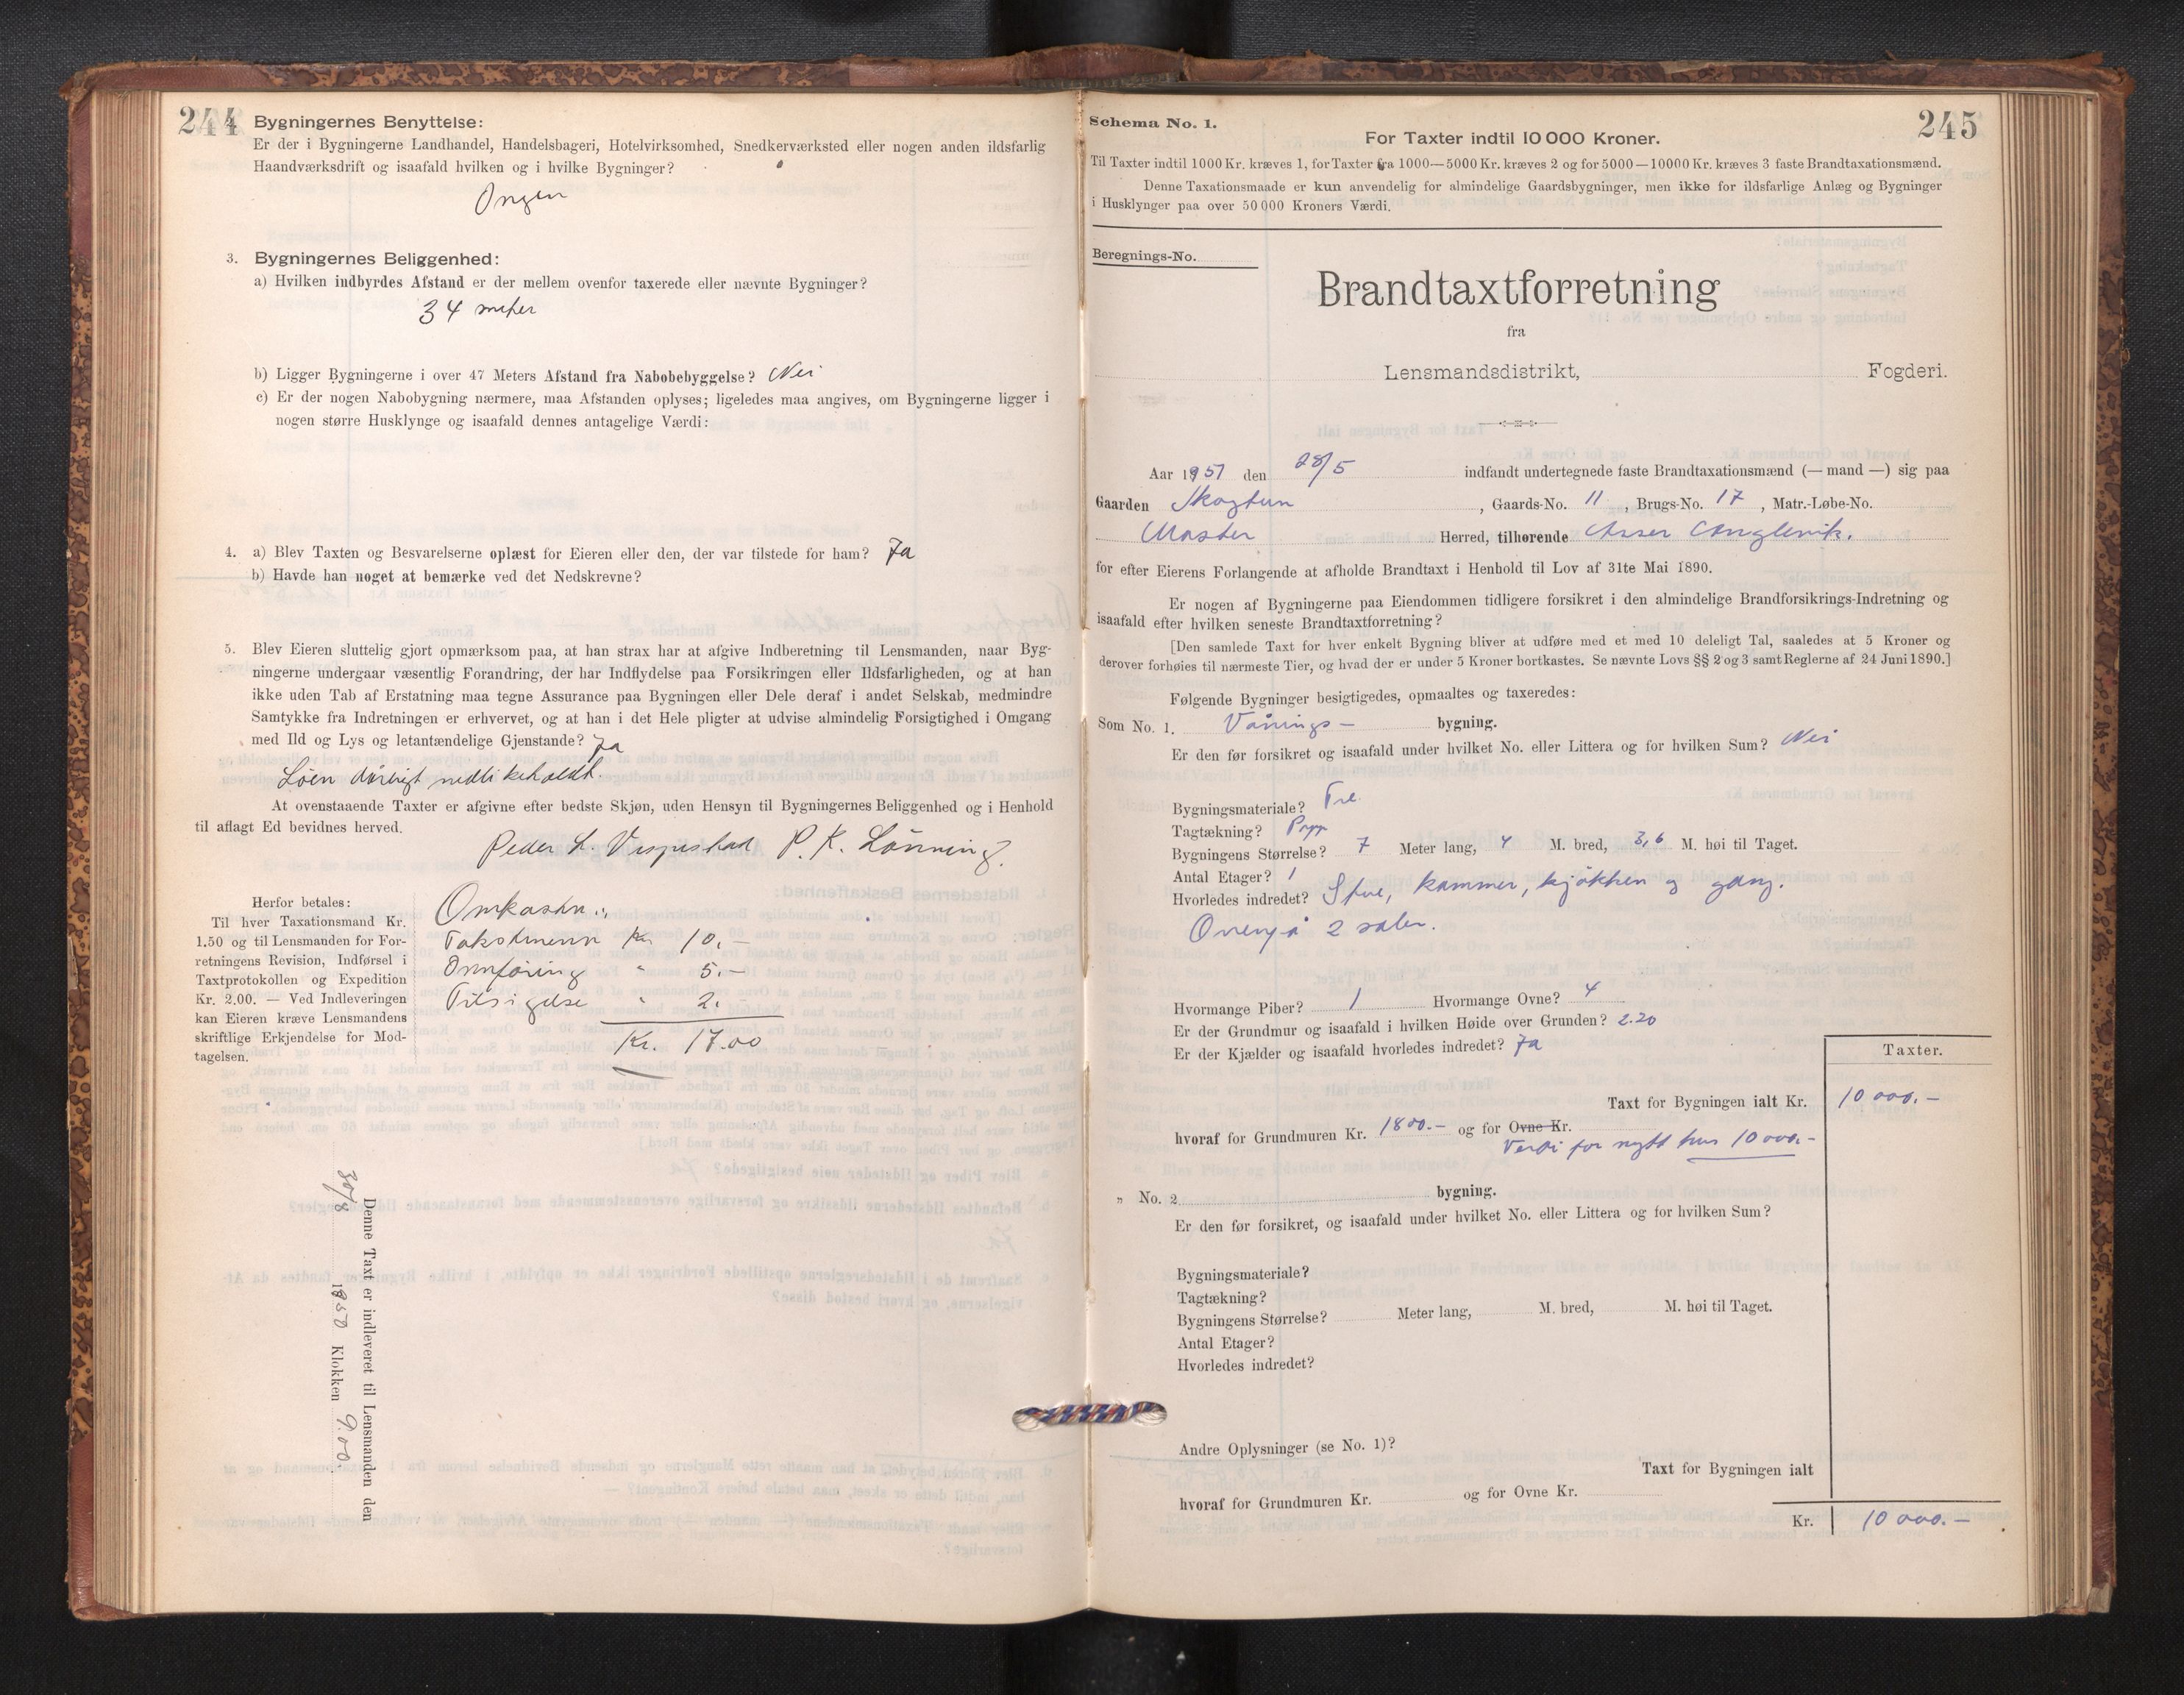 244
Bygningernes Benyttelse:
Er der i Bygningerne Landhandel, Handelsbageri, Hotelvirksomhed, Snedkerværksted eller nogen anden ildsfarlig
Haandværksdrift og isaafald hvilken og i hvilke Bygninger?
Ingen
3. Bygningernes Beliggenhed:
a) Hvilken indbyrdes Afstand er der mellem ovenfor taxerede eller nævnte Bygninger?
34 meter
b) Ligger Bygningerne i over 47 Meters Afstand fra Nabobebyggelse? Nei
c) Er der nogen Nabobygning nærmere, maa Afstanden oplyses; ligeledes maa angives, om Bygningerne ligger i
nogen større Husklynge og isaafald dennes antagelige Værdi:
4. a) Blev Taxten og Besvarelserne oplæst for Eieren eller den, der var tilstede for ham? Ja
b) Havde han noget at bemærke ved det Nedskrevne?
5. Blev Eieren sluttelig gjort opmærksom paa, at han strax har at afgive Indberetning til Lensmanden, naar Byg-
ningerne undergaar væsentlig Forandring, der har Indflydelse paa Forsikringen eller Ildsfarligheden, og at han
ikke uden Tab af Erstatning maa tegne Assurance paa Bygningen eller Dele deraf i andet Selskab, medmindre
Samtykke fra Indretningen er erhvervet, og at han i det Hele pligter at udvise almindelig Forsigtighed i Omgang
med Ild og Lys og letantændelige Gjenstande? Ja
Löen dårligt vedlikeholdt.
At ovenstaaende Taxter er afgivne efter bedste Skjøn, uden Hensyn til Bygningernes Beliggenhed og i Henhold
til aflagt Ed bevidnes herved.
Peder L. P. K. Lönning.
Herfor betales:
Til hver Taxationsmand Kr.
1.50 og til Lensmanden for For-
retningens Revision, Indførsel i
Taxtprotokollen og Expedition
Kr. 2.00. — Ved Indleveringen
kan Eieren kræve Lensmandens
skriftlige Erkjendelse for Mod-
tagelsen.
Omkostn.:
Takstmenn Kr 10.-
Innföring " 5.-
Tilsigelse " 2.-
Kr. 17.00
Denne Taxt er indleveret til Lensmanden den
30/8 1950 Klokken 9.00.
245
Schema No. 1.
For Taxter indtil 10 000 Kroner.
Til Taxter indtil 1000 Kr. kræves 1, for Taxter fra 1000—5000 Kr. kræves 2 og for 5000—10000 Kr. kræves 3 faste Brandtaxationsmænd.
Denne Taxationsmaade er kun anvendelig for almindelige Gaardsbygninger, men ikke for ildsfarlige Anlæg og Bygninger
i Husklynger paa over 50 000 Kroners Værdi.
Beregnings-No.
Brandtaxtforretning
fra
Lensmandsdistrikt, Fogderi.
Aar 1951 den 28/5 indfandt undertegnede faste Brandtaxationsmænd (— mand —) sig paa
Gaarden Skogtun, Gaards-No. 11, Brugs-No. 17, Matr.-Løbe-No.
Moster Herred, tilhørende Asser Anglevik.
for efter Eierens Forlangende at afholde Brandtaxt i Henhold til Lov af 31te Mai 1890.
Er nogen af Bygningerne paa Eiendommen tidligere forsikret i den almindelige Brandforsikrings-Indretning og
isaafald efter hvilken seneste Brandtaxtforretning?
[Den samlede Taxt for hver enkelt Bygning bliver at udføre med et med 10 deleligt Tal, saaledes at 5 Kroner og
derover forhøies til nærmeste Tier, og hvad der er under 5 Kroner bortkastes. Se nævnte Lovs §§ 2 og 3 samt Reglerne af 24 Juni 1890.]
Følgende Bygninger besigtigedes, opmaaltes og taxeredes:
Som No. 1. Vånings- bygning.
Er den før forsikret og isaafald under hvilket No. eller Littera og for hvilken Sum? Nei
Bygningsmateriale? Tre
Tagtækning? Papp
Bygningens Størrelse? 7 Meter lang, 4 M. bred, 3,6 M. høi til Taget.
Antal Etager? 1
Hvorledes indredet? Stue, kammer, kjökken og gang.
Ovenpå 2 saler.
Hvormange Piber? 1 Hvormange Ovne? 4
Er der Grundmur og isaafald i hvilken Høide over Grunden? 2.20
Er der Kjælder og isaafald hvorledes indredet? Ja
Taxter.
Taxt for Bygningen ialt Kr. 10 000.-
hvoraf for Grundmuren Kr. 1800.- og for Ovne Kr.
Verdi for nytt hus 10 000.-
" No. 2 bygning.
Er den før forsikret, og isaafald under hvilket No. eller Littera og for hvilken Sum?
Bygningsmateriale?
Tagtækning?
Bygningens Størrelse? Meter lang, M. bred, M. høi til Taget.
Antal Etager?
Hvorledes indredet?
Andre Oplysninger (se No. 1)?
Taxt for Bygningen ialt
hvoraf for Grundmuren Kr. og for Ovne Kr.
Kr. 10 000.-